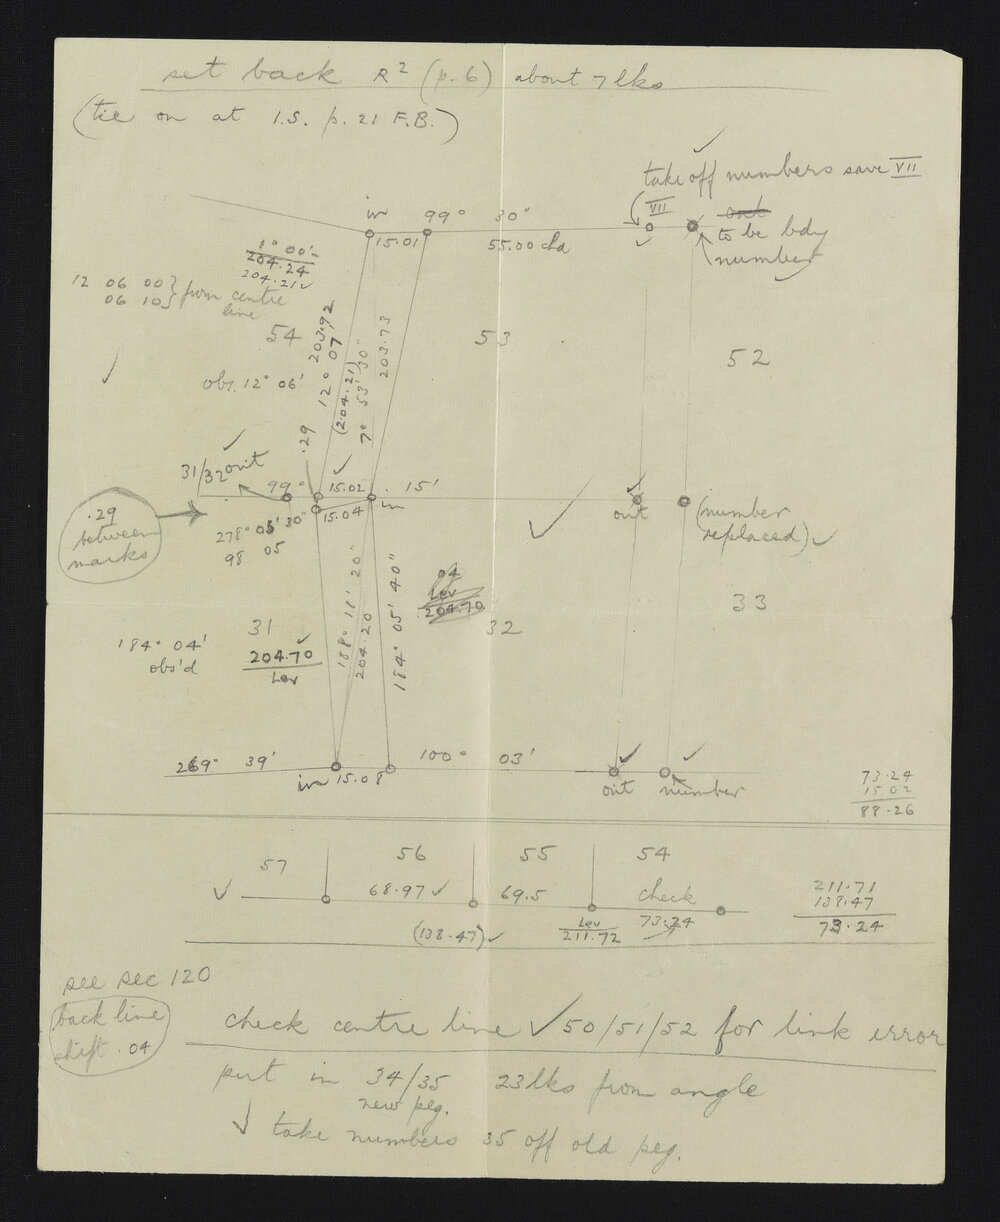 set back R² (p.6) about 7 lks
(tie on at I.S. p.21 F.B.)
take off numbers save VII
in 99° 30"
VII
out
to be bdy
number
15.01
55.00 cha
1° 00'
204.24
204.21
12 06 00 } from centre
06 10 } line
54
53
52
203.92
12° 07'
(204.21)
7° 53' 30"
203.73
obs. 12° 06'
.29
31/32 out
99°
15.02
15'
in
15.04
out
(number
replaced)
.29
between
marks
278° 05' 30"
98 05
04
Lev
204.70
33
32
31
184° 04'
obs'd
204.70
Lev
188° 18' 20"
204.20
184° 05' 40"
269° 39'
in 15.08
100° 03'
out
number
73.24
15 02
88.26
57
56
55
54
68.97
69.5
check
73.24
(138.47)
Lev
211.72
211.71
138.47
73.24
see sec 120
back line
shift .04
check centre line ✓ 50/51/52 for link error
put in 34/35 23 lks from angle
new peg.
take numbers 35 off old peg.